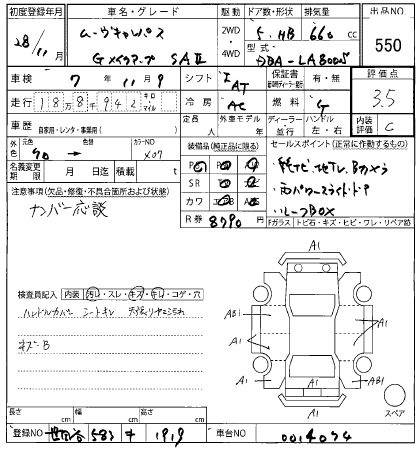 初度登録年月 車名・グレード 駆動 ドア数・形状 排気量 出品NO
28/11月 ムーヴキャンバス 2WD・4WD 5.HB 660cc 550
Gメイクアップ SAⅡ 型式 DBA-LA800S
車検 7年11月9 シフト IAT 保証書 有・無 評価点
走行 18万8千942 キロ マイル 冷房 AC 燃料 G 3.5
車歴 自家用・レンタ・事業用( ) 定員 人 外車モデル 年 ディーラー 並行 ハンドル 左・右 内装評価 C
元色 色替 カラーNO 装備品(純正品に限る) セールスポイント(正常に作動するもの)
外色 X07
名義変更期限 月 日 迄 積載 t
注意事項(欠品・修復・不具合箇所および状態) SR 両パワースライドドア
カワ ルーフBOX
ナンバー応談 R券 8790
Fガラス トビ石・キズ・ヒビ・ワレ・リペア跡
検査員記入 内装 汚れ・スレ・キズ・切れ・コゲ・穴
ハンドルカバー シートキレ
キズB
A1
A1
AB1 A1
A1
A1 AB1
A1
スペア
長さ cm 幅 cm 高さ cm
登録NO 世田谷 583 1919 車台NO 0014074